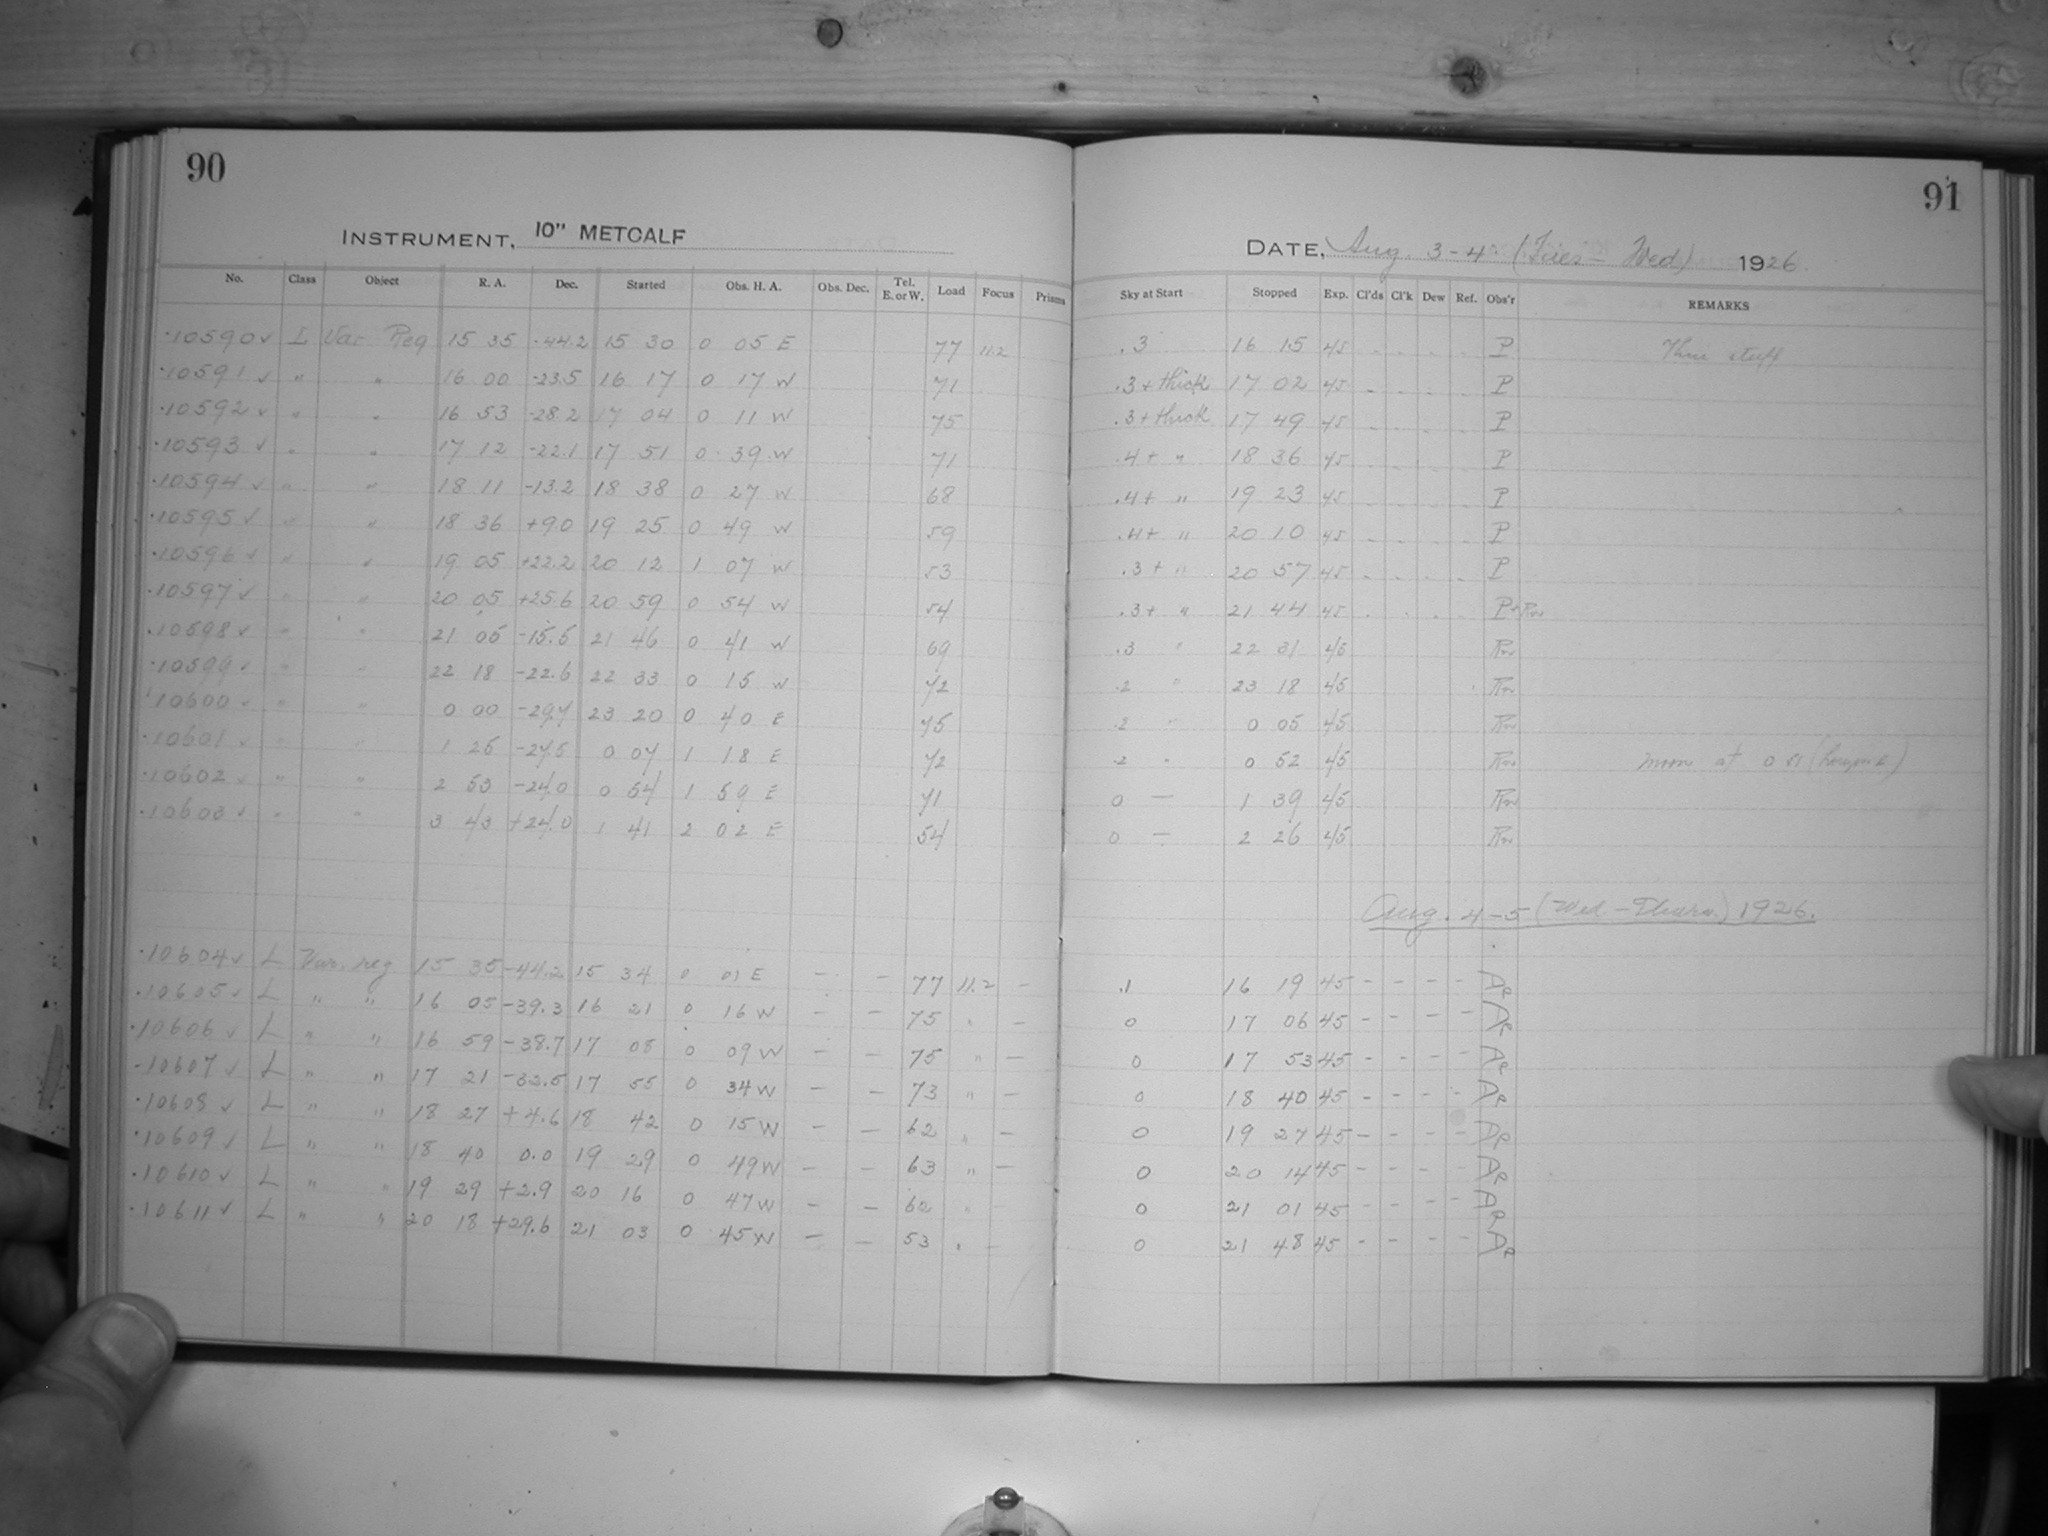 90
INSTRUMENT, 10" METCALF
No. Class Object R. A. Dec. Started Obs. H. A. Obs. Dec. Tel. E. or W. Load Focus Prisms
10590 ✓ L Var Reg 15 35 -44.2 15 30 0 05 E 77 11.2
10591 ✓ " " 16 00 -23.5 16 17 0 17 W 71
10592 ✓ " " 16 53 -28.2 17 04 0 11 W 75
10593 ✓ " " 17 12 -22.1 17 51 0 39 W 71
10594 ✓ " " 18 11 -13.2 18 38 0 27 W 68
10595 ✓ " " 18 36 +9.0 19 25 0 49 W 59
10596 ✓ " " 19 05 +22.2 20 12 1 07 W 53
10597 ✓ " " 20 05 +25.6 20 59 0 54 W 54
10598 ✓ " " 21 05 -15.5 21 46 0 41 W 69
10599 ✓ " " 22 18 -22.6 22 33 0 15 W 72
10600 ✓ " " 0 00 -29.7 23 20 0 40 E 75
10601 ✓ " " 1 25 -27.5 0 07 1 18 E 72
10602 ✓ " " 2 53 -24.0 0 54 1 59 E 71
10603 ✓ " " 3 43 +24.0 1 41 2 02 E 54
10604 ✓ L Var. reg 15 35 -44.2 15 34 0 01 E - - 77 11.2 -
10605 ✓ L " " 16 05 -39.3 16 21 0 16 W - - 75 " -
10606 ✓ L " " 16 59 -38.7 17 08 0 09 W - - 75 " -
10607 ✓ L " " 17 21 -32.5 17 55 0 34 W - - 73 " -
10608 ✓ L " " 18 27 +4.6 18 42 0 15 W - - 62 " -
10609 ✓ L " " 18 40 0.0 19 29 0 49 W - - 63 " -
10610 ✓ L " " 19 29 +2.9 20 16 0 47 W - - 62 " -
10611 ✓ L " " 20 18 +29.6 21 03 0 45 W - - 53 " -
91
DATE, Aug. 3-4 (Tues - Wed) 1926
Sky at Start Stopped Exp. Cl'ds Cl'k Dew Ref. Obs'r REMARKS
.3 16 15 45 - - - - P Thru stuff
.3 + thick 17 02 45 - - - - P
.3 + thick 17 49 45 - - - - P
.4 + " 18 36 45 - - - - P
.4 + " 19 23 45 - - - - P
.4 + " 20 10 45 - - - - P
.3 + " 20 57 45 - - - - P
.3 + " 21 44 45 P +
.3 " 22 31 45
.2 " 23 18 45
.2 " 0 05 45
.2 " 0 52 45 moon at 0 51
0 - 1 39 45
0 - 2 26 45
Aug. 4-5 (Wed - Thurs.) 1926.
.1 16 19 45 - - - - AR
0 17 06 45 - - - - AR
0 17 53 45 - - - - AR
0 18 40 45 - - - - AR
0 19 27 45 - - - - AR
0 20 14 45 - - - - AR
0 21 01 45 - - - - AR
0 21 48 45 - - - - AR